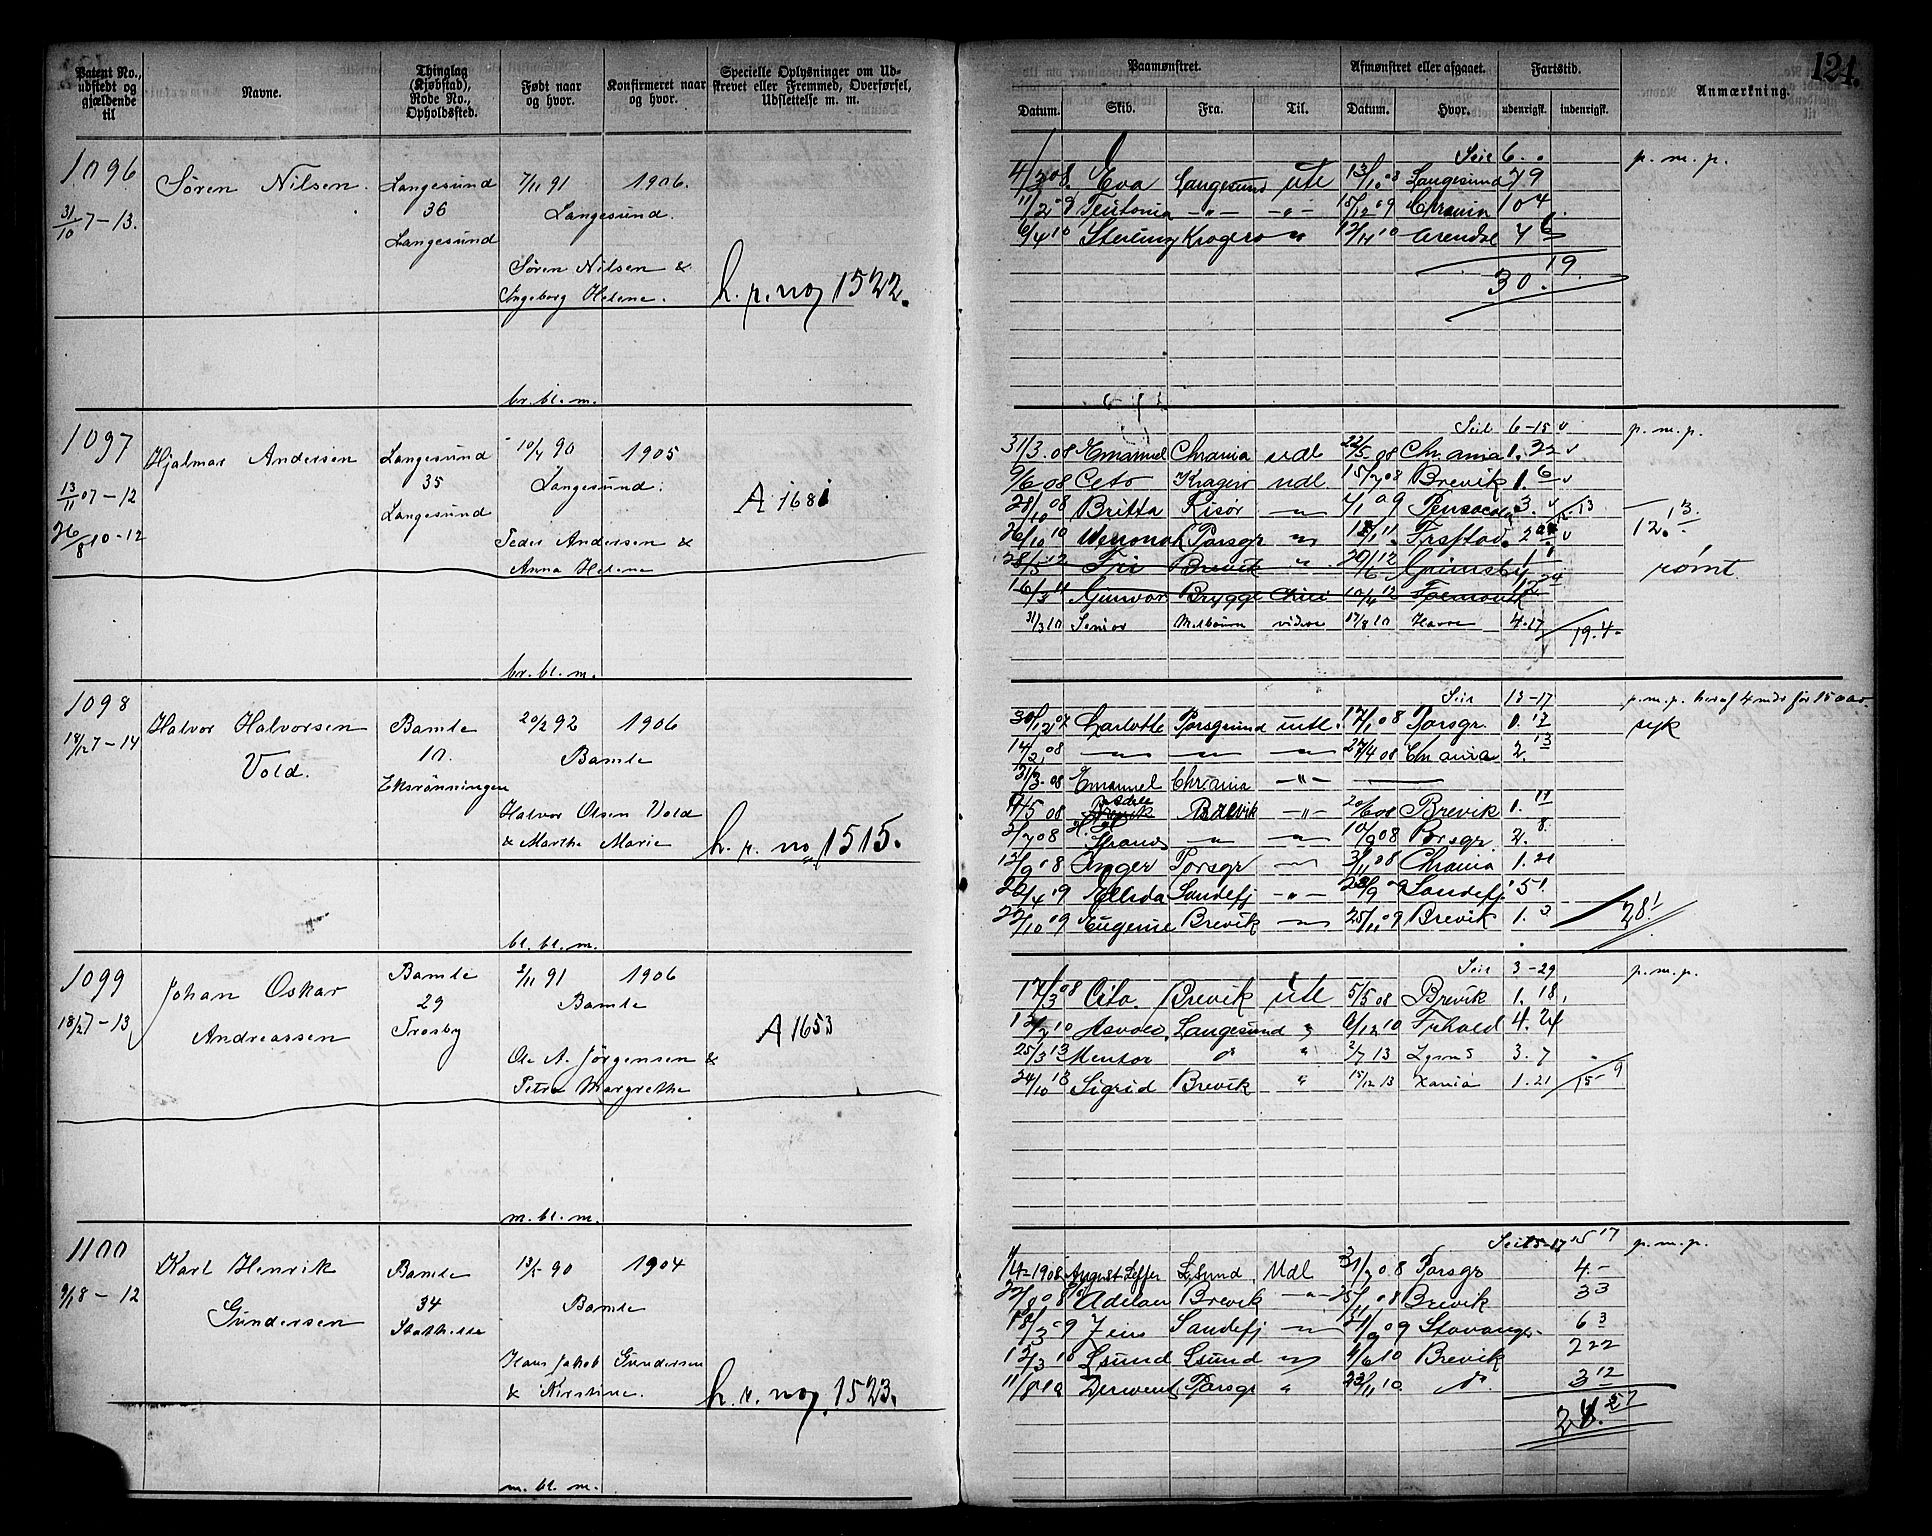 124.
Patent No., udstedt og gjældende til
Navne.
Thinglag (Kjøbstad), Rode No., Opholdssted.
Født naar og hvor.
Konfirmeret naar og hvor.
Specielle Oplysninger om Udskrevet eller Fremmed, Overførsel, Udslettelse m. m.
Paamønstret.
Afmønstret eller afgaaet.
Fartstid.
Anmærkning.
Datum. Skib. Fra. Til. Datum. Hvor. udenrigsk. indenrigsk.
1096
31/10 7 - 13.
Søren Nilsen.
Langesund
36
Langesund
7/11 91 1906.
Langesund.
Søren Nilsen &
Ingeborg Helene.
h. r. no, 1522.
br. bl. m.
Seil 6. p. m. p.
4/3 08. Eva Langesund ute 13/10 08 Langesund 7 9
11/2 09 Teutonia -"- -"- 15/12 09 Chrania 10 4.
6/4 10 Sterling Kragerø 12/11 10 Arendal 7 6
30. 19.
1097
13/11 07 - 12
26/8 10 - 12
Hjalmar Andersen
Langesund
35
Langesund
10/4 90 1905
Langesund.
Peder Andersen &
Anna Helene
A 1681
br. bl. m.
Seil 6-15 v p. m. p.
31/3. 08 Emanuel Chrania udl 22/5 08 Chr.ania 1. 22 v
9/6 08 Ceto Kragerø udl. 15/7 08 Brevik 1. 6 v
28/10 08 Britta Risør 4/1 09 Pensacola 3.
26/10 10 Wenonah Porsgr Frstad. 12. 13
28/5 12 Fri Brevik 20/6 12 Grimsby rømt.
16/3 11 Gunvor Brygge 10/4 12
31/3 10 Senior Melbourn videre 17/8 10 Havre 4. 17 19. 4.
1098
18/12 7 - 14
Halvor Halvorsen
Vold.
Bamle
10.
Eksrønningen
20/2 92 1906
Bamle
Halvor Olsen Vold
& Marthe Marie
h. r. no, 1515.
bl. bl. m.
Seil 13-17 p. m. p. heraf 4 mdr før 15 aar.
30/12 07 Charlotte Porsgrund utl. 17/1 08 Porsgr. 0. 17 syk
14/2 08 27/4 08 Chr ania 2. 13
31/3. 08 Emanuel Chr.ania -"-
08 Brevik -"- 20/6 08 Brevik 1.
2/7 08 Strand 10/9 08 Porsgr. 2. 8.
12/9 08 Inger Porsgr 3/11 08 Chrania 1. 21
22/4 09 Ellida Sandefj -"- 28/9 09 Sandefj 5 1.
22/10 09 Eugenie Brevik 25/11 09 Brevik 1. 3 28 1
1099
18/12 7 - 13
Johan Oskar
Andreassen
Bamle
29
Trosby
2/11 91 1906
Bamle
Ole A. Jørgensen &
Petra Margrethe
A 1653
m. bl. m.
Seil 3-29 p. m. p.
17/3 08 Ceto. Brevik ute 5/5 08 Brevik 1. 18.
Langesund " 9/12 10 Frhald 4. 24
25/3 13 Mentor " 2/7 13 3. 7
24/10 13 Sigrid Brevik " 15/12 13 Xania 1. 21 15 9
1100
9/1 8 - 12
Karl Henrik
Gundersen
Bamle
34
Stathelle
13/5 90 1904
Bamle
Hans Jakob Gundersen
& Kirstine.
h. r. no, 1523.
m. bl. m.
Seil 15-17 15 17 p. m. p.
1/4 1908 August Leffer Lsund Udl 31/7 08 Porsgr 4. -
22/8 08 Adelaer Brevik -"- 25/11 08 Brevik 3 3
18/3 09 Zeus Sandefj 21/9 09 Stavanger 6 3
12/3 10 Lsund Lsund 4/6 10 Brevik 2 22
11/8 10 Derwent Porsgr " 23/11 10 do. 3 12